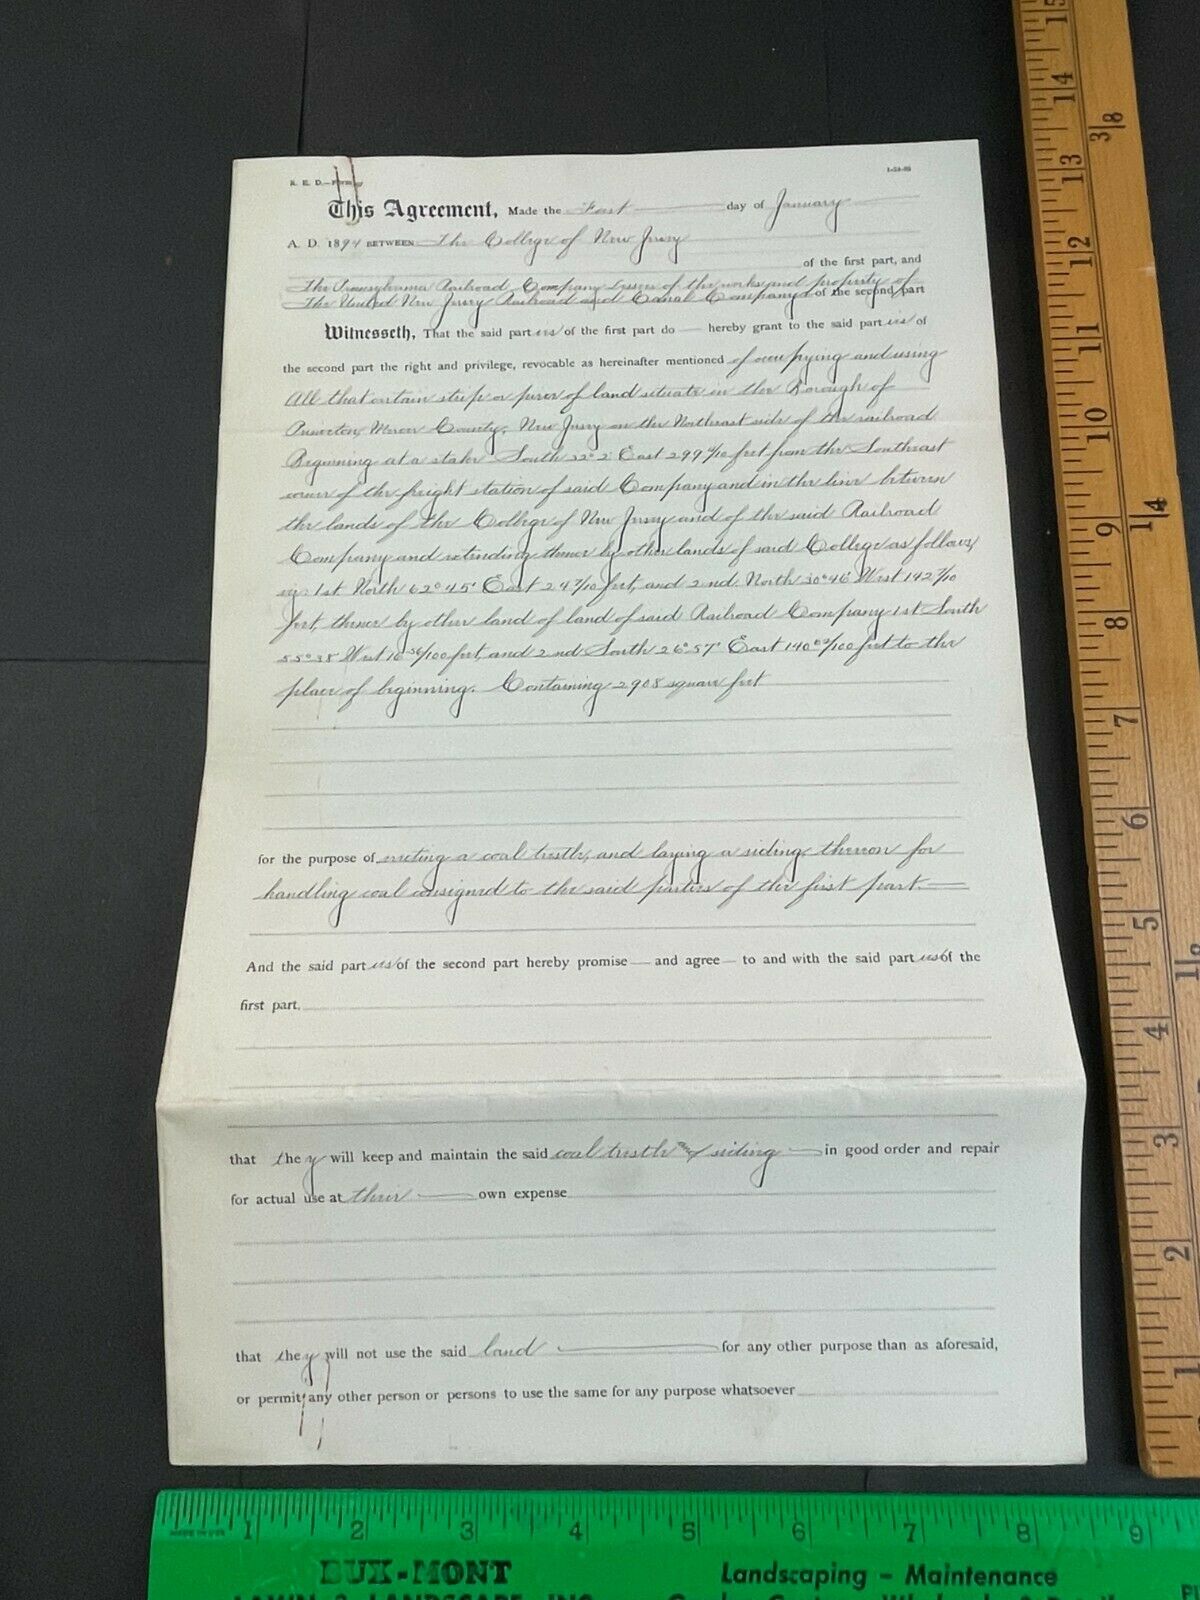 R. E. D.—Form
1-24-93
This Agreement, Made the First day of January
A. D. 1894 BETWEEN The College of New Jersey
of the first part, and
The Pennsylvania Railroad Company Lessee of the works and property of
The United New Jersey Railroad and Canal Company of the second part
Witnesseth, That the said parties of the first part do — hereby grant to the said parties of
the second part the right and privilege, revocable as hereinafter mentioned of occupying and using
All that certain strip or piece of land situate in the Borough of
Princeton, Mercer County, New Jersey on the Northeast side of the railroad
Beginning at a stake South 32° 2' East 299 4/10 feet from the Southeast
corner of the freight station of said Company and in the line between
the lands of the College of New Jersey and of the said Railroad
Company and extending thence by other lands of said College as follows,
viz: 1st North 62° 45' East 24 7/10 feet, and 2nd. North 30° 46' West 142 7/10
feet, thence by other land of land of said Railroad Company 1st South
55° 38' West 16 56/100 feet, and 2nd South 26° 57' East 140 82/100 feet to the
place of beginning. Containing 2908 square feet
for the purpose of erecting a coal trestle, and laying a siding thereon for
handling coal consigned to the said parties of the first part.—
And the said parties of the second part hereby promise — and agree — to and with the said parties of the
first part,
that they will keep and maintain the said coal trestle and siding in good order and repair
for actual use at their own expense
that they will not use the said land for any other purpose than as aforesaid,
or permit any other person or persons to use the same for any purpose whatsoever
15
14
13
12
11
10
9
8
7
6
5
4
3
2
1
3|8
1|4
1|8
MADE IN USA
1 2 3 4 5 6 7 8 9
BUX-MONT
Landscaping - Maintenance
LAWN & LANDSCAPE, INC.